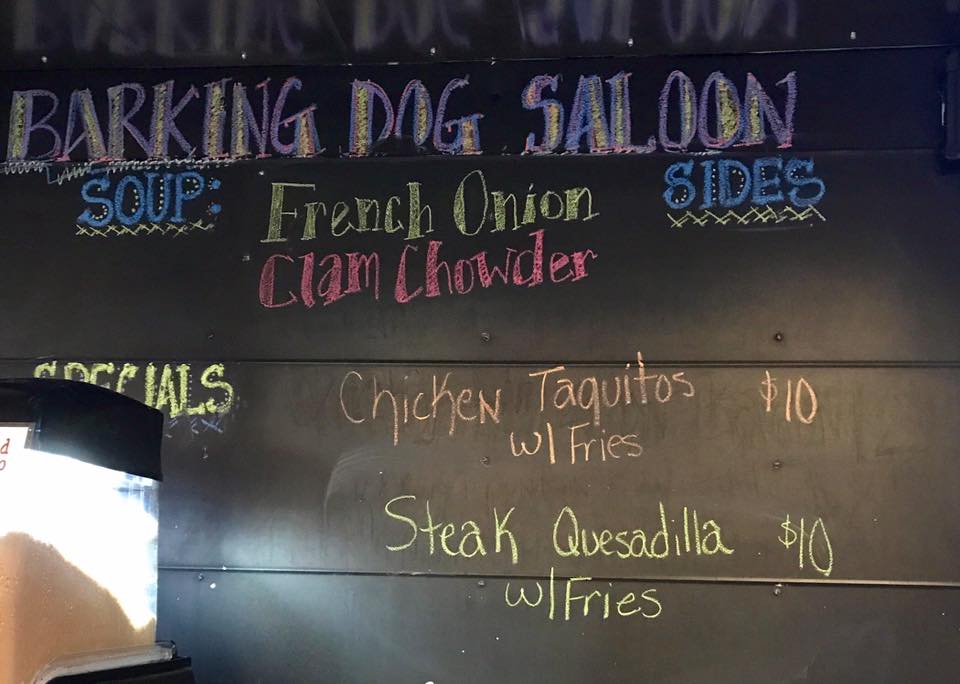 BARKING DOG SALOON
SOUP: French Onion SIDES
Clam Chowder
SPECIALS Chicken Taquitos $10
w/ Fries
Steak Quesadilla $10
w/ Fries